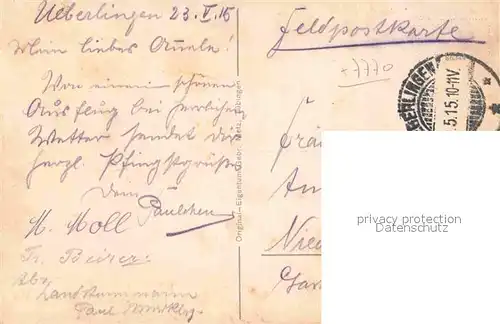 Ueberlingen 23.V.15
Mein liebes Amele!
Von einem schönen
Ausflug bei herrlichem
Wetter sendet dir
herzl. Pfingstgrüße
Dein
Paulchen
M. Moll
Fr. Beirer
Landsturmmann
Paul
Original-Eigentum Gebr. Metz, Tübingen
Feldpostkarte
7770
BERLINGEN
.5.15.10-11V.
privacy protection